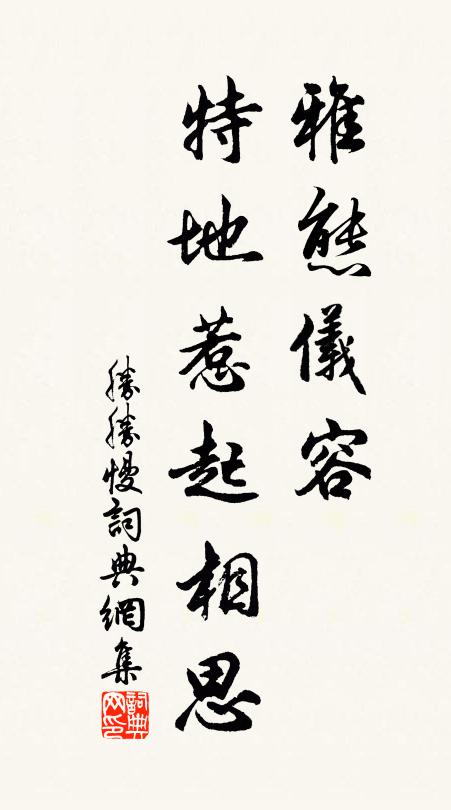 雅態儀容
特地惹起相思
勝勝慢詞典網集
詞典网印